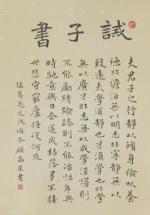 誡子書
夫君子之行靜以脩身儉以養
德非澹泊無以明志非寧靜無以
致遠夫學須靜也才須學也非學
無以廣才非志無以成學淫慢則
不能勵精險躁則不能冶性年與
時馳意與日去遂成枯落多不接
世悲守窮廬將復何及
諸葛亮文